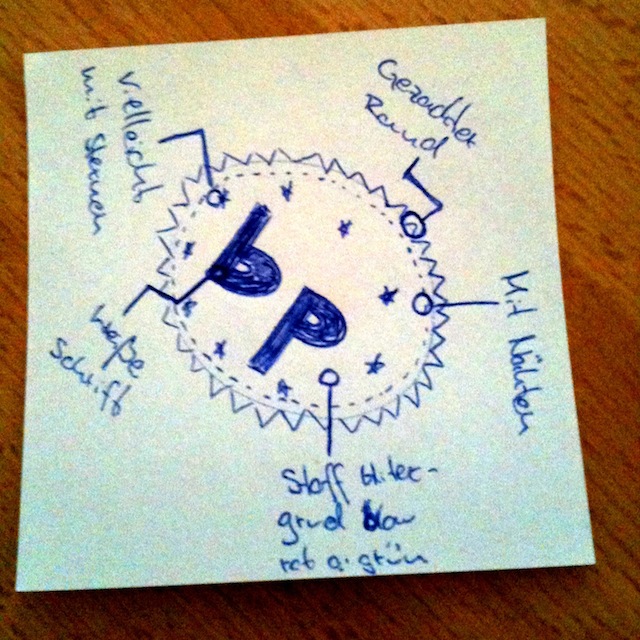 Vielleicht
mit Sternen
Gezackter
Rand
Mit Nähten
weiße
Schrift
b
P
Stoff hinter-
grund blau
rot o. grün